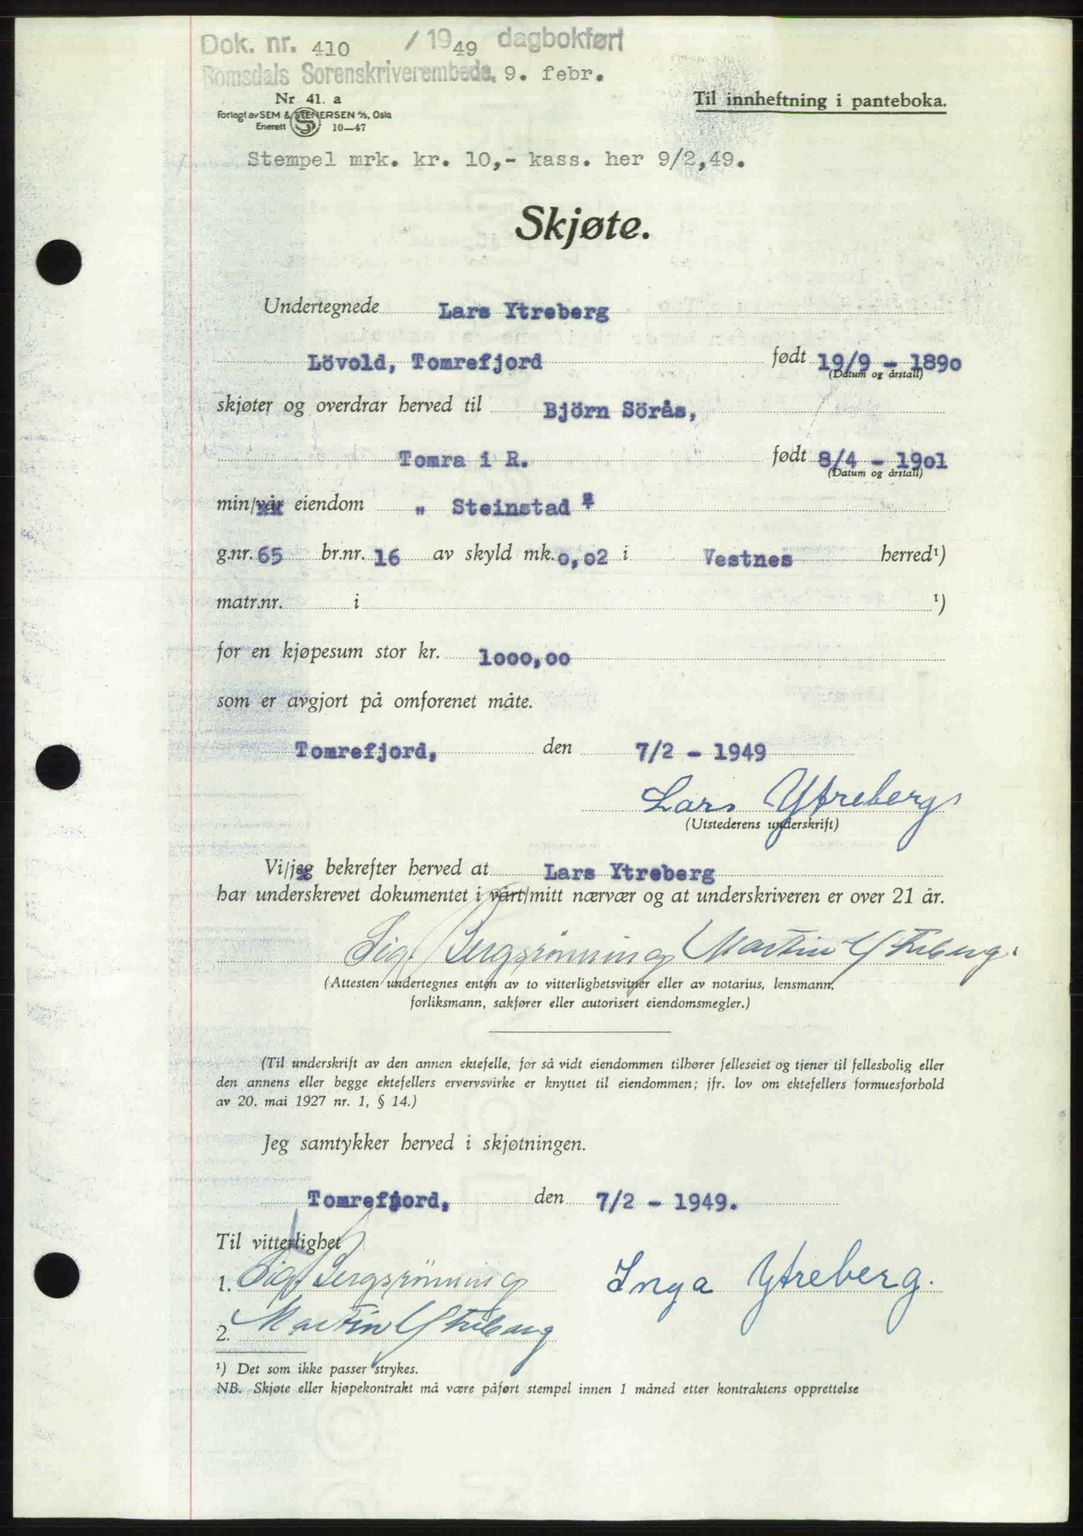 Dok. nr. 410 / 1949 dagbokført
Romsdals Sorenskriverembede, 9. febr.
Nr 41. a
Til innheftning i panteboka.
Forlagt av SEM & STENERSEN A/S, Oslo
Enerett S 10—47
Stempel mrk. kr. 10,- kass. her 9/2,49.
Skjøte.
Undertegnede Lars Ytreberg
Lövold, Tomrefjord født 19/9 - 1890
(Datum og årstall)
skjøter og overdrar herved til Björn Sörås,
Tomra i R. født 8/4 - 1901
(Datum og årstall)
min/vår eiendom „ Steinstad "
g.nr. 65 br.nr. 16 av skyld mk. 0,02 i Vestnes herred¹)
matr.nr. i ¹)
for en kjøpesum stor kr. 1000,00
som er avgjort på omforenet måte.
Tomrefjord, den 7/2 - 1949
Lars Ytreberg
(Utstederens underskrift)
Vi/jeg bekrefter herved at Lars Ytreberg
har underskrevet dokumentet i vårt/mitt nærvær og at underskriveren er over 21 år.
Sig. Bergsrønning Martin Ytreberg.
(Attesten undertegnes enten av to vitterlighetsvitner eller av notarius, lensmann,
forliksmann, sakfører eller autorisert eiendomsmegler.)
(Til underskrift av den annen ektefelle, for så vidt eiendommen tilhører felleseiet og tjener til fellesbolig eller
den annens eller begge ektefellers ervervsvirke er knyttet til eiendommen; jfr. lov om ektefellers formuesforhold
av 20. mai 1927 nr. 1, § 14.)
Jeg samtykker herved i skjøtningen.
Tomrefjord, den 7/2 - 1949.
Til vitterlighet
1. Sig. Bergsrönning Inga Ytreberg.
2. Martin Ytreberg
¹) Det som ikke passer strykes.
NB. Skjøte eller kjøpekontrakt må være påført stempel innen 1 måned etter kontraktens opprettelse